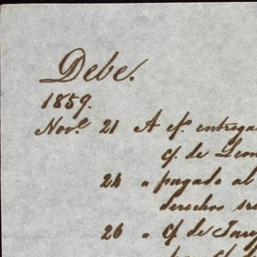 Debe.
1859.
Nov.e 21 A ef. entrega
cf. de Leon
24 " pagado al
derechos
26 " cf de